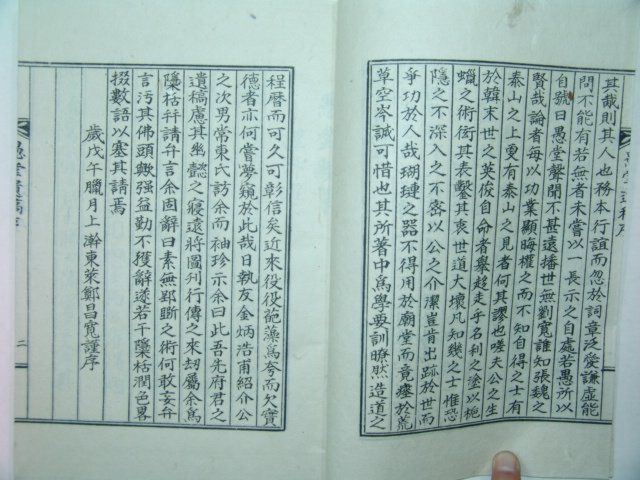 其哉則其人也務本行誼而忽於詞章泛愛謙虛能
問不能有若無者未嘗以一長示之自處若愚所以
自號曰愚堂聲聞不甚遠播世無劉寬誰知張魏之
賢哉論者每以功業顯晦權之而不知自得之士有
泰山之上更有泰山之見者何其謬也嗟夫公之生
於韓末世之英俊自命者舉趨走乎名利之塗以梔
蠟之術衒其表鑿其衷世道大壞凡知幾之士惟恐
隱之不深入之不密以公之介潔豈肯出跡於世而
爭功於人哉瑚璉之器不得用於廟堂而竟瘞於荒
草空岑誠可惜也其所著中爲學要訓暸然造道之
程曆而可久可彰信矣近來役役葩藻爲夸而欠實
德者亦何嘗夢窺於此哉日執友金炳浩甫紹介公
之次男常東氏訪余而袖珍示余曰此吾先府君之
遺稿慮其幽懿之寢遠將圖刊行傳之來劫屬余爲
隱枯幷請弁言余固辭曰素無郢斲之術何敢妄弁
言汚其佛頭歟强益勤不獲辭遂若干隱枯潤色畧
掇數語以塞其請焉
歲戊午臘月上澣東萊鄭昌寬謹序
二